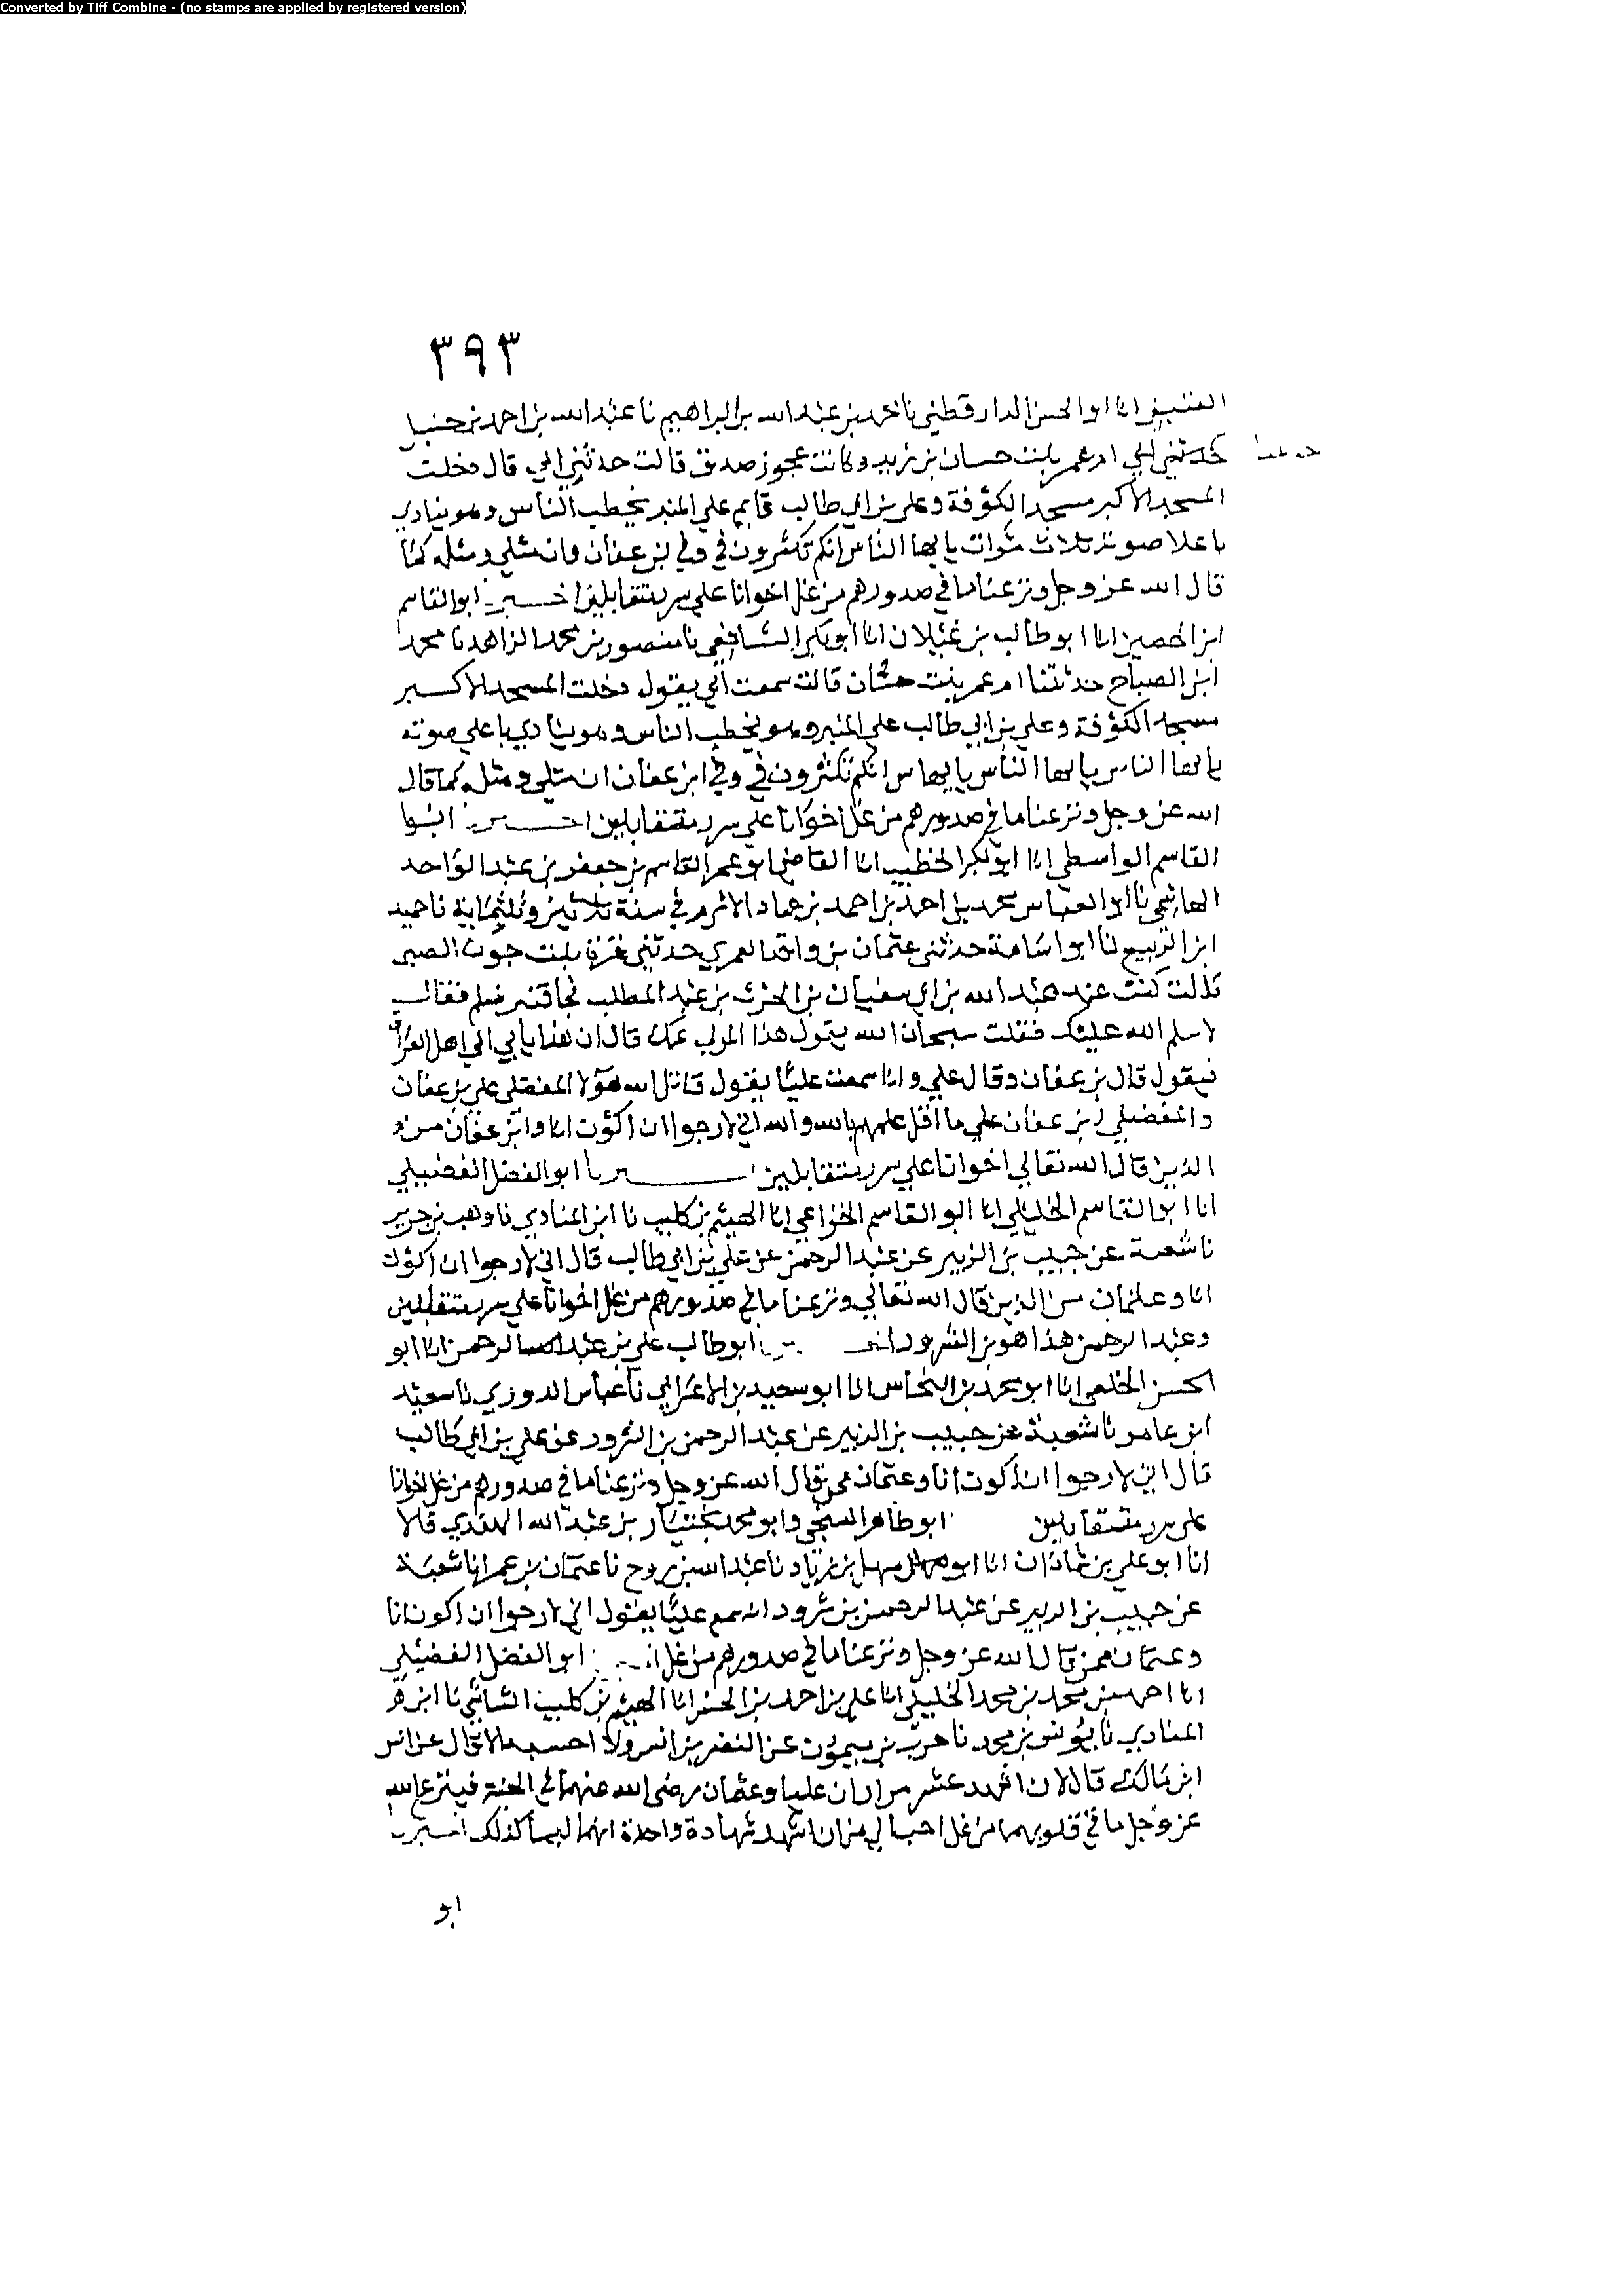 Converted by Tiff Combine - (no stamps are applied by registered version)
٣٩٣
انا ابو الحسن الدارقطني نا محمد بن عبد الله بن ابراهيم نا عبد الله بن احمد بن حنبل
حدثني ابي ام عمر بنت حسان بن زيد وكانت عجوز صدق قالت حدثني ابي قال دخلت
المسجد الاكبر مسجد الكوفة وعلي بن ابي طالب قايم علي المنبر يخطب الناس وهو ينادي
باعلا صوته ثلاث مرات يا يها الناس انكم تكثرون في وفي بن عفان وان مثلي ومثله كما
قال الله عز وجل ونزعنا ما في صدورهم من غل اخوانا علي سرر متقابلين اخبرنا ابو القاسم
ابن الحصين انا ابو طالب بن غيلان انا ابو بكر الشافعي نا منصور بن محمد الزاهد نا محمد
ابن الصباح حدثتنا ام عمر بنت حسان قالت سمعت ابي يقول دخلت المسجد الاكبر
مسجد الكوفة وعلي بن ابي طالب علي المنبر وهو يخطب الناس وهو ينادي باعلي صوته
يا يها الناس يا يها الناس يا يها س انكم تكثرون في وفي ابن عفان ان مثلي ومثله كما قال
الله عز وجل ونزعنا ما في صدورهم من غل اخوانا علي سرر متقابلين اخبرنا ابو
القاسم الواسطي انا ابو بكر الخطيب انا القاضي ابو عمر القاسم بن جعفر بن عبد الواحد
الهاشمي نا ابو العباس محمد بن احمد بن احمد بن حماد الاثرم في سنة ثلاثين وثلثماية نا حميد
ابن الربيع نا ابو اسامة حدثني عثمان بن واقد العمري حدثني بنت جون
قالت كنت عند عبد الله بن ابي سفيان بن الحرث بن عبد المطلب فسلم فقال
لا سلم الله عليك فقلت سبحان الله يقول هذا عمك قال ان هذا ياتي الي اهل العراق
فيقول قال بن عفان وقال علي وانا سمعت عليا يقول قاتل الله هولا المفضلي علي بن عفان
والمفضلي بن عفان علي ما اقل علمهم بالله والله اني لارجوا ان اكون انا وابن عفان من
الذين قال الله تعالي اخوانا علي سرر متقابلين اخبرنا ابو الفضل الفضيلي
انا ابو القاسم الخليلي انا ابو القاسم الخزاعي انا الهيثم بن كليب نا ابن المنادي نا وهب بن جرير
نا شعبة عن حبيب بن الزبير عن عبد الرحمن عن علي بن ابي طالب قال اني لارجوا ان اكون
انا وعثمان من الذين قال الله تعالي ونزعنا ما في صدورهم من غل اخوانا علي سرر متقابلين
وعبد الرحمن هذا هو بن الشرود ابو طالب علي بن عبد الرحمن انا ابو
الحسن الخلعي انا ابو محمد بن النحاس انا ابو سعيد بن الاعرابي نا عباس الدوري نا سعيد
ابن عامر نا شعبة عن حبيب بن الزبير عن عبد الرحمن بن الشرود عن علي بن ابي طالب
قال اني لارجوا ان اكون انا وعثمان ممن قال الله عز وجل ونزعنا ما في صدورهم من غل اخوانا
علي سرر متقابلين ابو طاهر السنجي وابو محمد بختيار بن عبد الله الهندي قالا
انا ابو علي بن شاذان انا ابو سهل بن زياد نا عبد الله بن روح نا عثمان بن عمر انا شعبة
عن حبيب بن الزبير عن عبد الرحمن بن شرود انه سمع عليا يقول اني لارجوا ان اكون انا
وعثمان ممن قال الله عز وجل ونزعنا ما في صدورهم من غل ابو الفضل الفضيلي
انا احمد بن محمد بن محمد الخليلي انا علي بن احمد بن الحسن انا الهيثم بن كليب الشاشي نا ابن
المنادي نا يونس بن محمد نا حرب بن ميمون عن النضر بن انس ولا احسبه الا قال عن انس
ابن مالك قال لان اشهد عشر مرار ان عليا وعثمان رضي الله عنهما في الجنة فينزع الله
عز وجل ما في قلوبهما من غل احب الي من ان اشهد شهادة واحدة انهما ليسا كذلك اخبرنا
ابو